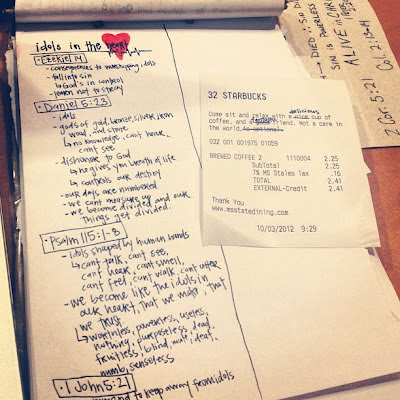 idols in the heart
• Ezekiel 14
- consequences to worshipping idols
- fall into sin
↳ God's in control
- lemen not to stray
• Daniel 5:23
- idols
- gods of gold, bronze, silver, iron
wood, and stone
↳ no knowledge, can't hear,
can't see
- dishonor to God
↳ he gives you breath of life
↳ controls our destiny
- our days are numbered
- we can't measure up and our
- we become divided and our
things get divided.
• Psalm 115:1-8
- idols shaped by human hands
↳ cant talk, cant see,
cant hear, cant smell,
cant feel, cant walk, cant utter
- we become like the idols in
our heart, that we make, that
we trust
↳ worthless, powerless, useless,
nothing, purposeless, dead,
fruitless, blind, mute, deaf,
numb, senseless
• 1 John 5:21
to keep away from idols
32 STARBUCKS
delicious
Come sit and relax with a nice cup of
coffee, and a friend. Not a care in
the world, is optional.
032 001 001975 01059
BREWED COFFEE 2 1110004 2.25
SubTotal 2.25
7% MS Stales Tax .16
TOTAL 2.41
EXTERNAL-Credit 2.41
Thank You
www.msstatedining.com
10/03/2012 9:29
→ DIED
SIN IS POWERLESS
ALIVE IN
2 Cor. 5:21 Col. 2:13-14